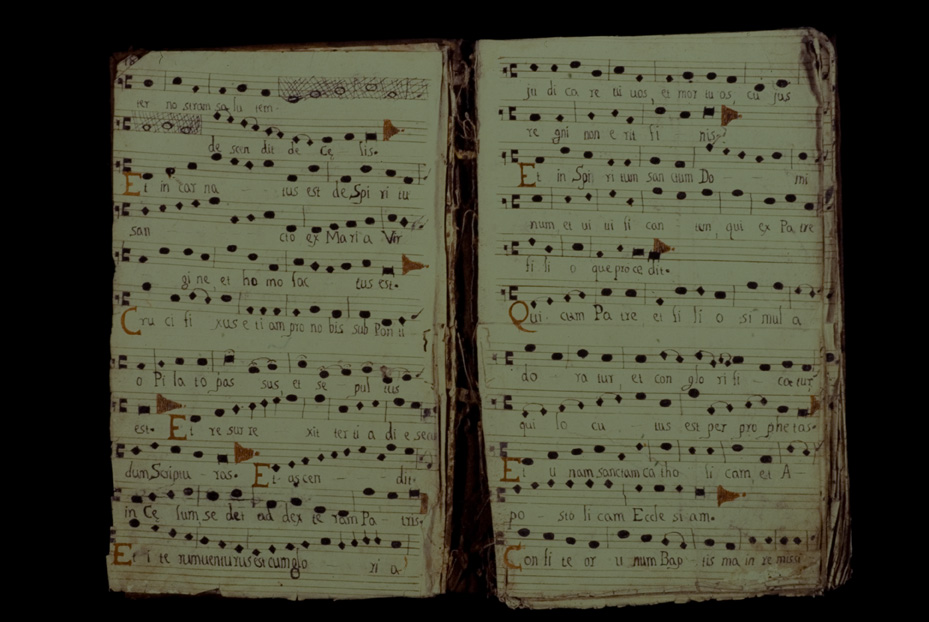 ter no stram sa lu tem.
de scen dit de Cę lis.
Et in car na tus est de Spi ri tu
san cto ex Mari a Vir
gi ne, et ho mo fac tus est.
Cru ci fi xus e ti am pro no bis sub Pon ti
o Pi la to pas sus, et se pul tus
est. Et re sur re xit ter ti a di e secu
dum Scriptu ras. Et as cen dit.
in Cę lum se det ad dex te ram Pa tris.
Et i te rum uenturus est cum glo ri a
ju di ca re ui uos, et mor tu os, cu jus
re gni non e rit fi nis.
Et in Spi ri tum san ctum Do mi
num, et ui ui fi can tem, qui ex Pa tre
fi li o que pro ce dit.
Qui cum Pa tre et fi li o si mul a
do ra tur, et con glo ri fi ca tur
qui lo cu tus est per pro phe tas.
Et u nam sanctam ca tho li cam, et A
po sto li cam Eccle si am.
Con fi te or u num Bap tis ma in re missi